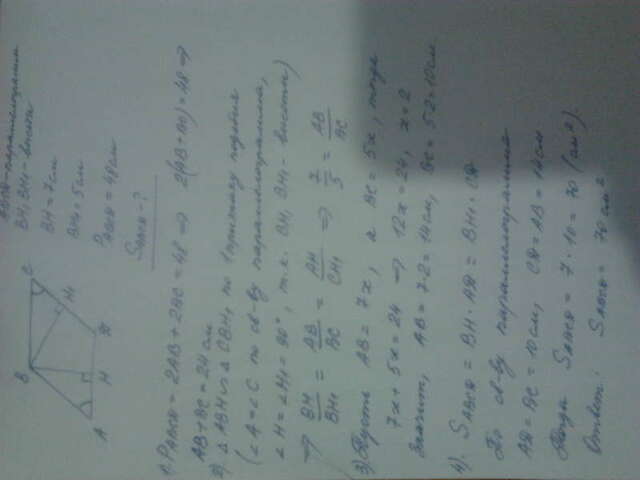 ABCD-параллелограмм
BH, BH₁ - высоты
BH = 7 см
BH₁ = 5 см
P_ABCD = 48 см
S_ABCD - ?
B
C
H₁
A
H
D
1) P_ABCD = 2AB + 2BC = 48 ⇒ 2(AB+BC) = 48 ⇒
AB + BC = 24 см
2) △ABH ∾ △CBH₁ по 1 признаку подобия
(∠A = ∠C по св-ву параллелограмма,
∠H = ∠H₁ = 90°, т.к. BH, BH₁ - высоты)
⇒ BH/BH₁ = AB/BC = AH/CH₁ ⇒ 7/5 = AB/BC
3) Пусть AB = 7x, а BC = 5x, тогда
7x + 5x = 24 ⇒ 12x = 24, x = 2
Значит, AB = 7·2 = 14 см, BC = 5·2 = 10 см.
4) S_ABCD = BH · AD = BH₁ · CD
По св-ву параллелограмма
AD = BC = 10 см, CD = AB = 14 см
Тогда S_ABCD = 7 · 10 = 70 (см²)
Ответ: S_ABCD = 70 см²